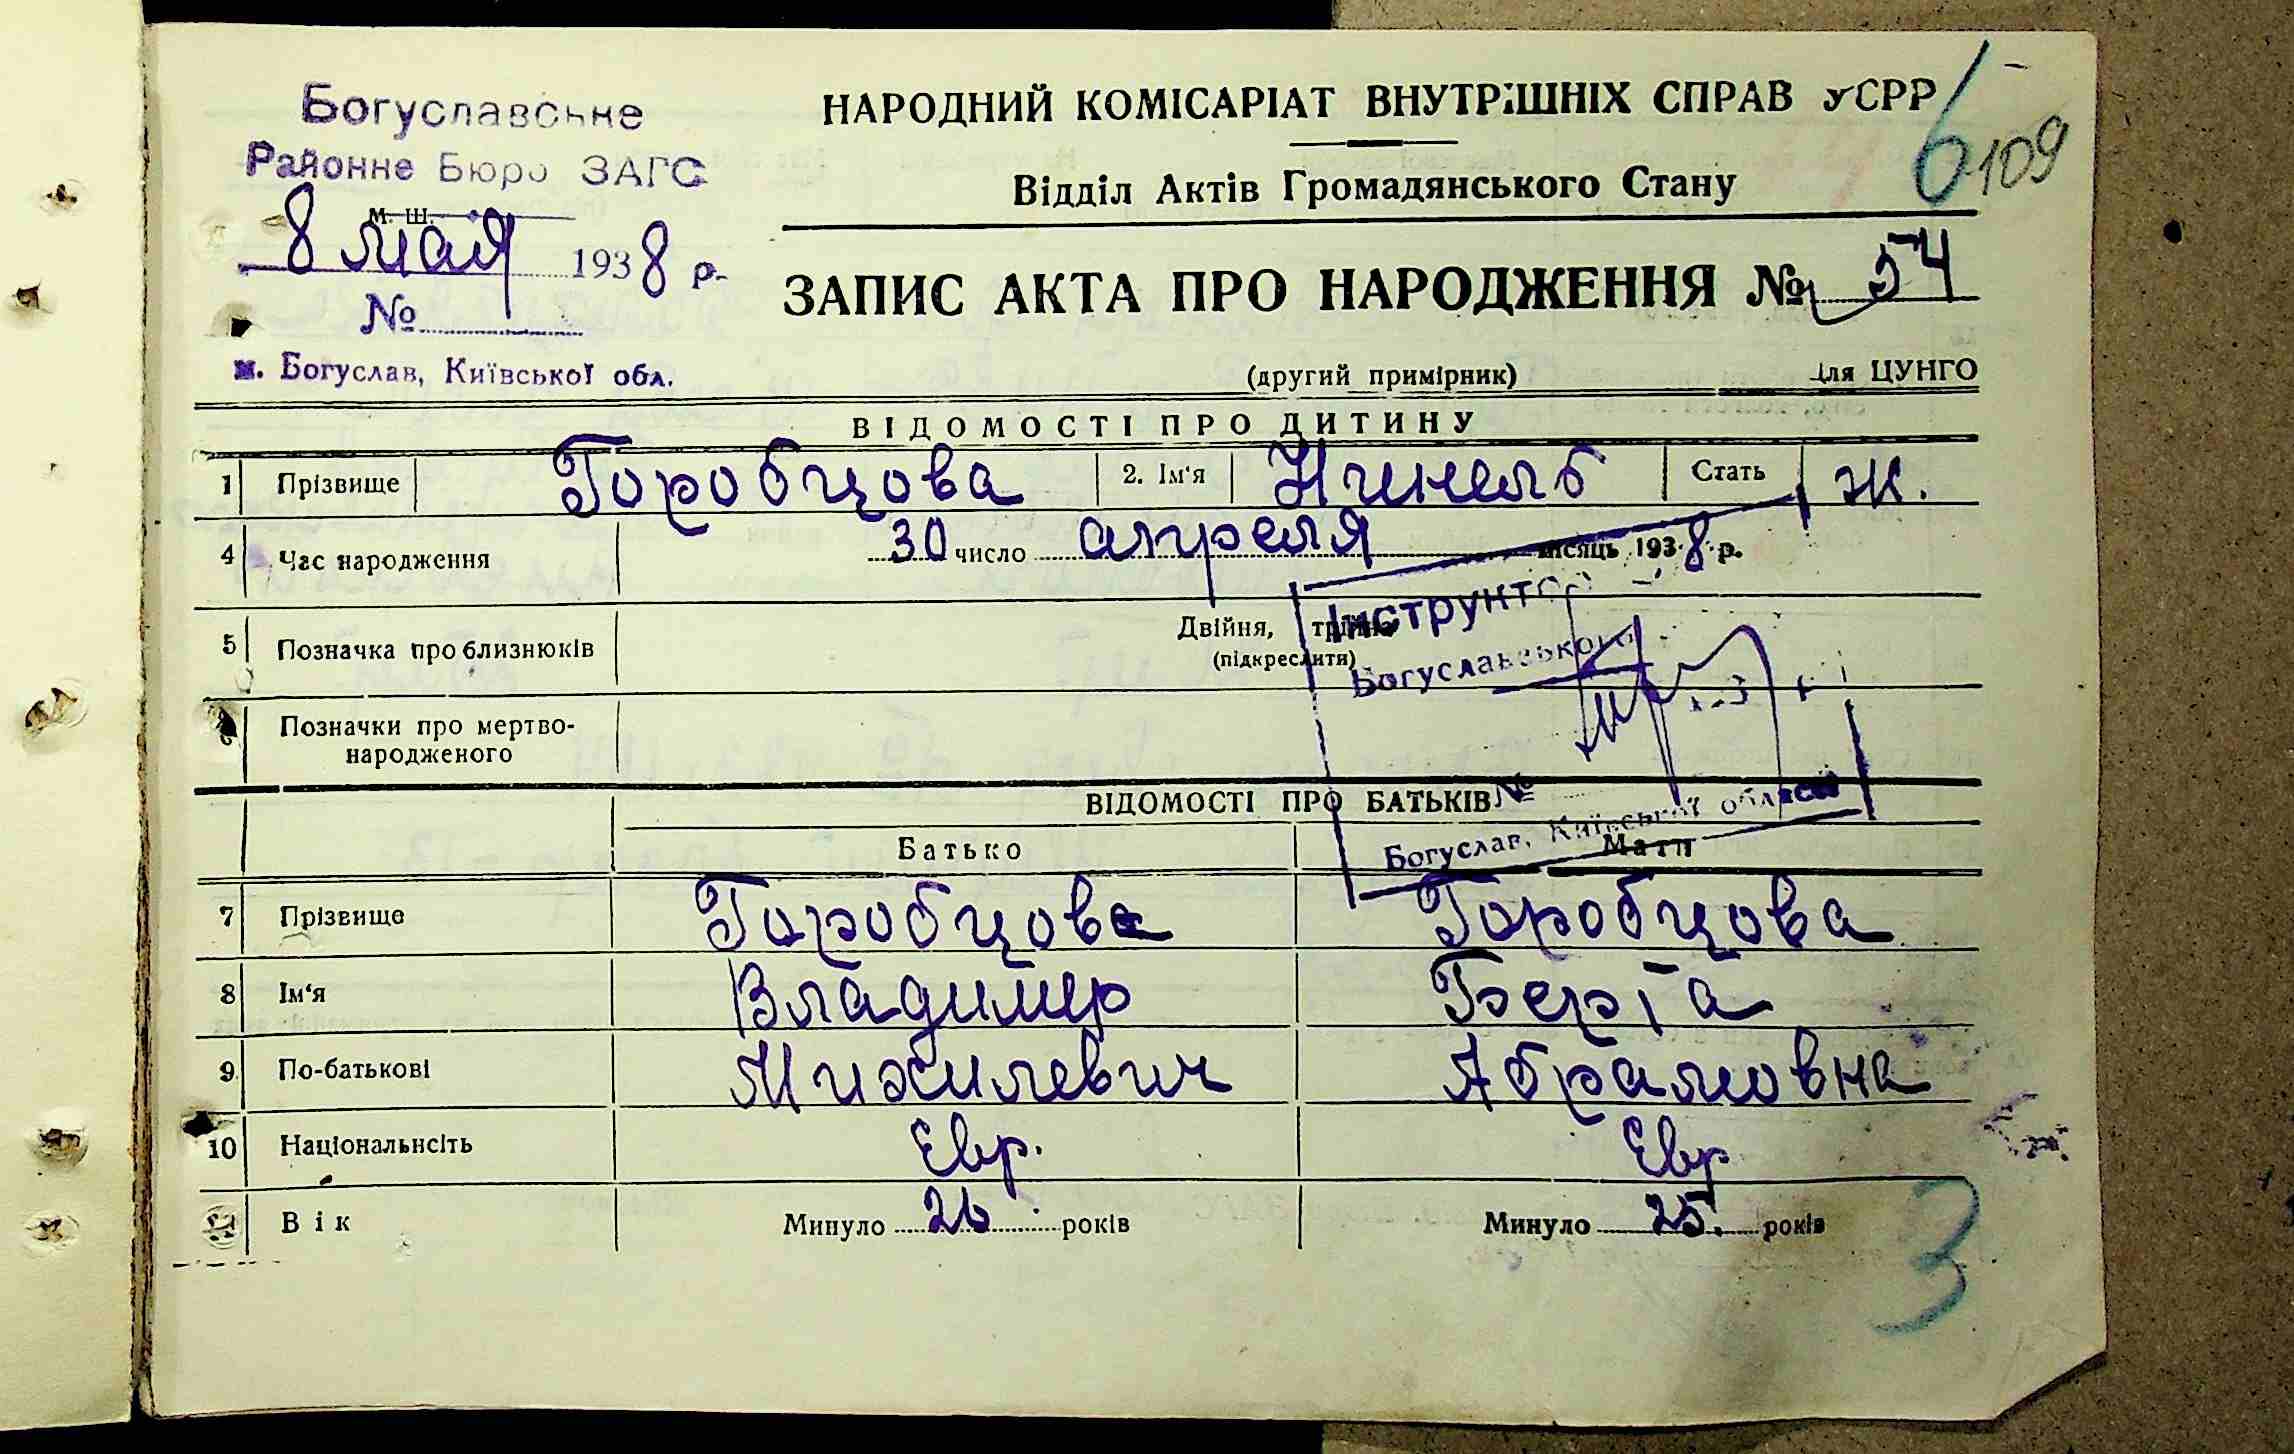 Богуславське
Районне Бюро ЗАГС
м. ш.
8 мая 1938 р.
№
м. Богуслав, Київської обл.
НАРОДНИЙ КОМІСАРІАТ ВНУТРІШНІХ СПРАВ УСРР
6 109
Відділ Актів Громадянського Стану
ЗАПИС АКТА ПРО НАРОДЖЕННЯ № 54
(другий примірник) Для ЦУНГО
ВІДОМОСТІ ПРО ДИТИНУ
1 Прізвище Горобцова 2. Ім'я Нинель Стать ж.
4 Час народження 30 число апреля місяць 1938 р.
5 Позначка про близнюків Двійня, трійня
(підкреслити)
Інструктор
Богуславського
6 Позначки про мертво-
народженого
№
Богуслав, Київської області
ВІДОМОСТІ ПРО БАТЬКІВ
Батько Мати
7 Прізвище Горобцов Горобцова
8 Ім'я Владимир Берта
9 По-батькові Михилевич Абрамовна
10 Національнсіть Евр. Евр
11 Вік Минуло 26 років Минуло 25. років
3